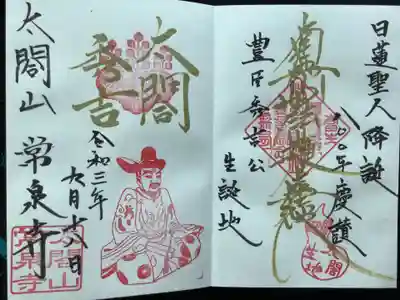 日蓮聖人降誕
八〇〇年慶讃
南無妙法蓮華経
豊臣秀吉公
生誕地
太閤
秀吉
令和三年
九月十六日
太閤山 常泉寺
太閤山
常泉寺